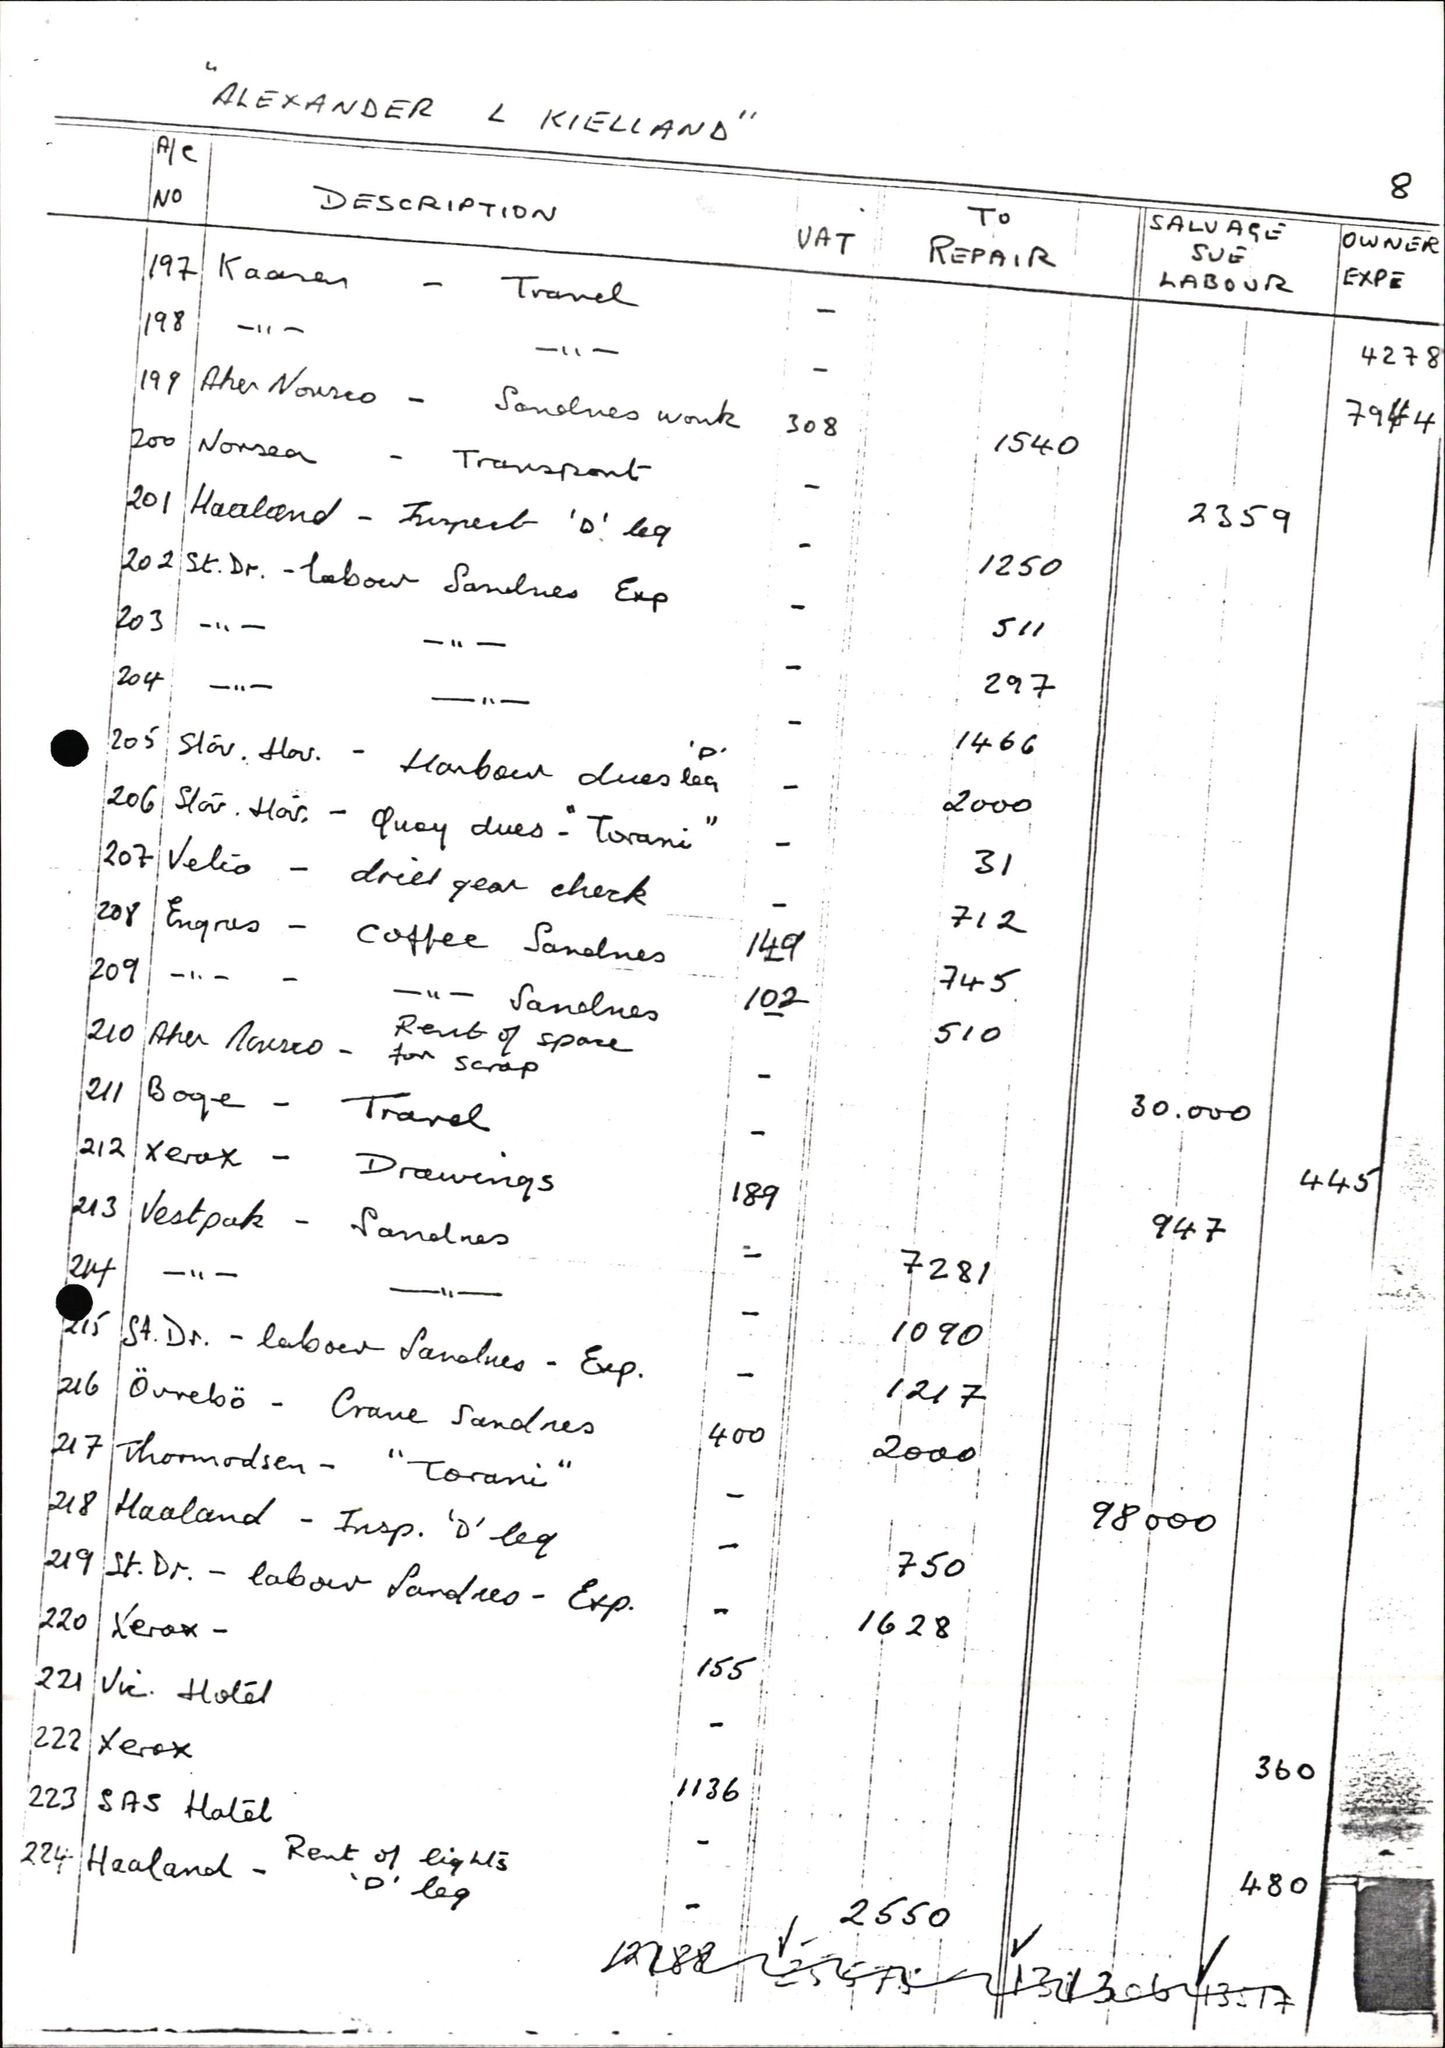 "ALEXANDER L KIELLAND"
8
A/C NO DESCRIPTION VAT TO REPAIR SALVAGE SUE LABOUR OWNER EXPE
197 Kaaren - Travel - 4278
198 -"- -"- - 7944
199 Aker Norsco - Sandnes work 308 1540
200 Norsea - Transport - 2359
201 Haaland - Inspect 'D' leg - 1250
202 St. Dr. - labour Sandnes Exp - 511
203 -"- -"- - 297
204 -"- -"- - 1466
205 Stav. Hav. - Harbour dues 'D' leg - 2000
206 Stav. Hav. - Quay dues - "Torani" - 31
207 - drill gear check - 712
208 Engros - Coffee Sandnes 149 745
209 -"- - -"- Sandnes 102 510
210 Aker Norsco - Rent of space for scrap - 30.000
211 Boge - Travel - 445
212 Xerox - Drawings 189 947
213 Vestpak - Sandnes - 7281
214 -"- -"- - 1090
215 St. Dr. - labour Sandnes - Exp. - 1217
216 Övrebö - Crane Sandnes 400 2000
217 Thormodsen - "Torani" - 98000
218 Haaland - Insp. 'D' leg - 750
219 St. Dr. - labour Sandnes - Exp. - 1628
220 Xerox - 155
221 Vic. Hotel - 360
222 Xerox 1136
223 SAS Hotel - 480
224 Haaland - Rent of lights 'D' leg - 2550
131306 13517